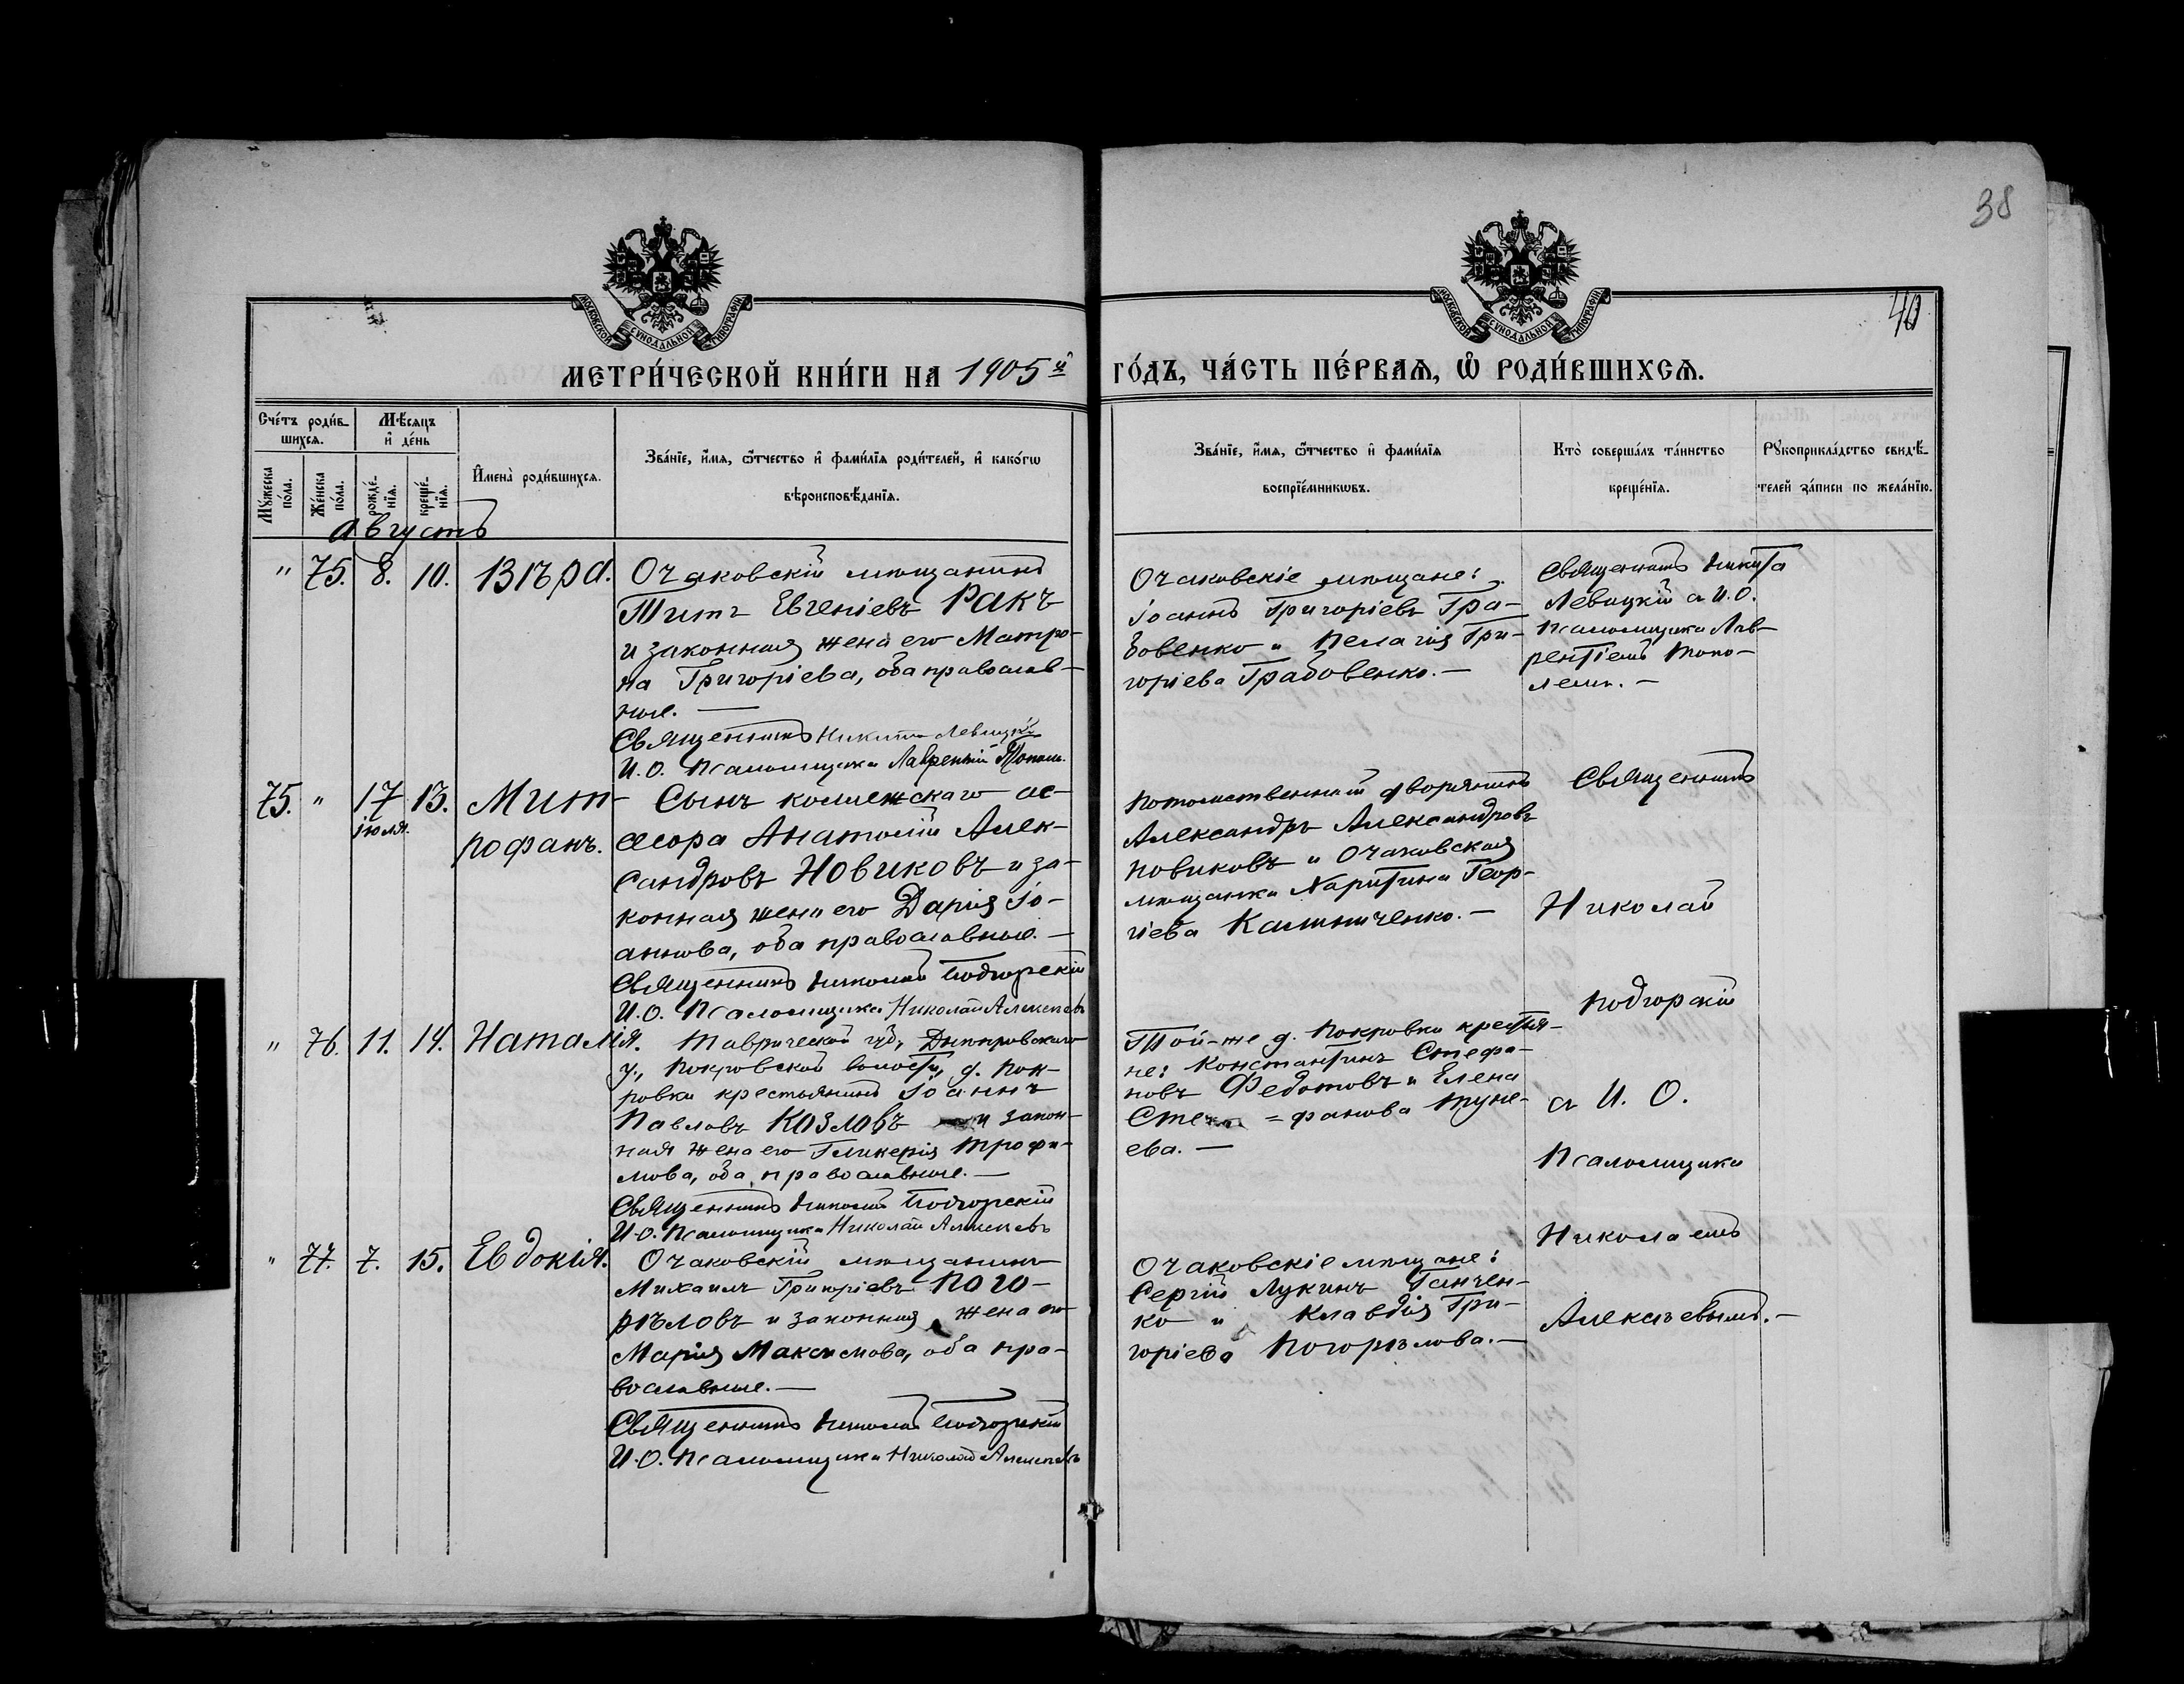 38
40
МОСКОВСКОЙ СѴНОДАЛЬНОЙ ТИПОГРАФІИ
МОСКОВСКОЙ СѴНОДАЛЬНОЙ ТИПОГРАФІИ
МЕТРИ́ЧЕСКОЙ КНИ́ГИ НА 1905й ГО́ДЪ, ЧА́СТЬ ПЕ́РВАѦ, Ѡ҆ РОДИ́ВШИХСѦ.
Сче́тъ роди́в-
шихсѧ.
Мѣ́сѧцъ
и҆ де́нь
Мꙋ́жеска
по́ла.
Же́нска
по́ла.
рожде́-
нїѧ.
креще́-
нїѧ.
И҆мена̀ роди́вшихсѧ.
Зва́нїе, и҆́мѧ, ѻ҆́тчество и҆ фами́лїѧ роди́телей, и҆ како́гѡ
вѣроисповѣ́данїѧ.
Зва́нїе, и҆́мѧ, ѻ҆́тчество и҆ фами́лїѧ
воспрїе́мникѡвъ.
Кто̀ соверша́лъ та́инство
креще́нїѧ.
Рꙋкоприкла́дство свидѣ́-
телей за́писи по жела́нїю.
Августъ
" 75. 8. 10. Вѣра.
Очаковскій мѣщанинъ
Титъ Евгеніевъ Ракъ
и законная жена его Матро-
на Григоріева, оба православ-
ные. —
Священникъ Никита Левицкій
И. О. Псаломщика Лаврентій
Очаковскіе мѣщане:
Іоаннъ Григоріевъ Гра-
бовенко и Пелагія Гри-
горіева Грабовенко. —
Священникъ Никита
Левицкій съ И. О.
Псаломщика Лав-
рентіемъ Топо-
лемъ. —
75. " 17 13. Мит-
іюля. рофанъ.
Сынъ коллежскаго ас-
сесора Анатолій Алек-
сандровъ Новиковъ и за-
конная жена его Дарія Іо-
аннова, оба православные. —
Священникъ Николай Подгорскій
И. О. Псаломщика Николай Алексѣевъ
Потомственный дворянинъ
Александръ Александровъ
Новиковъ и Очаковская
мѣщанка Харитина Геор-
гіева Калиниченко. —
Священникъ
Николай
Подгорскій
съ И. О.
Псаломщика
Николаемъ
Алексѣевымъ. —
" 76. 11. 14. Наталія.
Таврической губ., Днѣпровскаго
у., Покровской волости, д. Пок-
ровки крестьянинъ Іоаннъ
Павловъ Козловъ и закон-
ная жена его Гликерія Трофи-
мова, оба православные. —
Священникъ Николай Подгорскій
И. О. Псаломщика Николай Алексѣевъ
Той-же д. Покровки крестья-
не: Константинъ Стефа-
новъ Федотовъ и Елена
Сте = фанова Туне-
ева. —
" 77. 7. 15. Евдокія.
Очаковскій мѣщанинъ
Михаилъ Григоріевъ Пого-
рѣловъ и законная жена его
Марія Максимова, оба пра-
вославные. —
Священникъ Николай Подгорскій
И. О. Псаломщика Николай Алексѣевъ
Очаковскіе мѣщане:
Сергій Лукинъ Ганчен-
ко и Клавдія Гри-
горіева Погорѣлова. —